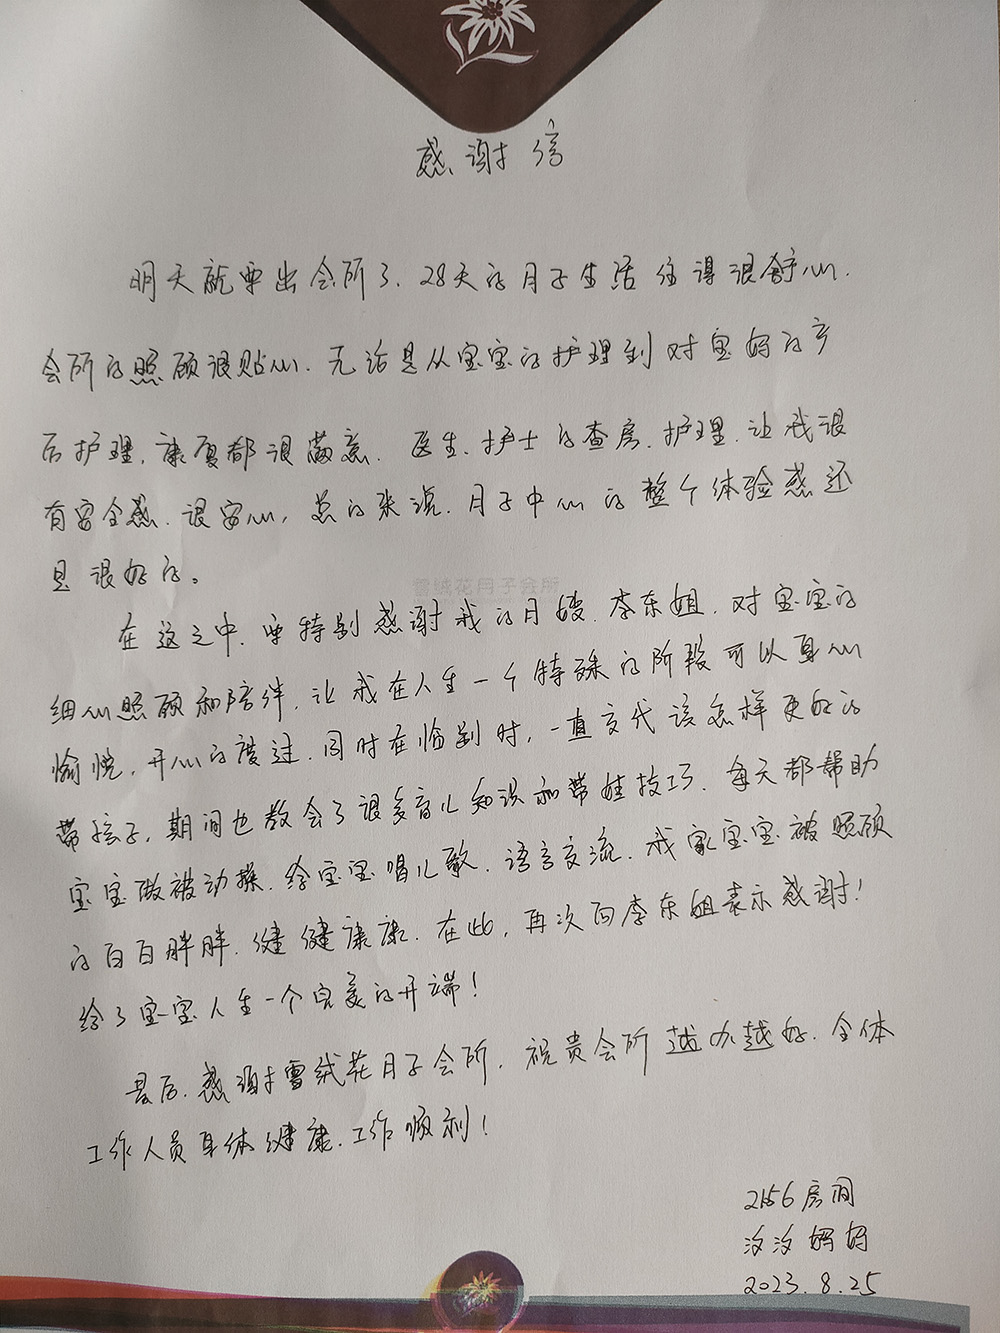 感谢信
明天就要出会所了、28天的月子生活住得很舒心.
会所的照顾很贴心.无论是从宝宝的护理到对宝妈的产
后护理,康复都很满意.医生、护士的查房、护理、让我很
有安全感、很安心,总的来说、月子中心的整个体验感还
是很好的。
雪绒花月子会所
在这之中、要特别感谢我的月嫂、李东姐、对宝宝的
细心照顾和陪伴,让我在人生一个特殊的阶段可以身心
愉悦,开心的度过.同时在临别时,一直交代该怎样更好的
带孩子,期间也教会了很多育儿知识和带娃技巧、每天都帮助
宝宝做被动操、给宝宝唱儿歌、语言交流、我家宝宝被照顾
的白白胖胖、健健康康.在此,再次向李东姐表示感谢!
给了宝宝人生一个完美的开端!
最后、感谢雪绒花月子会所,祝贵会所越办越好、全体
工作人员身体健康、工作顺利!
2156房间
汐汐妈妈
2023.8.25